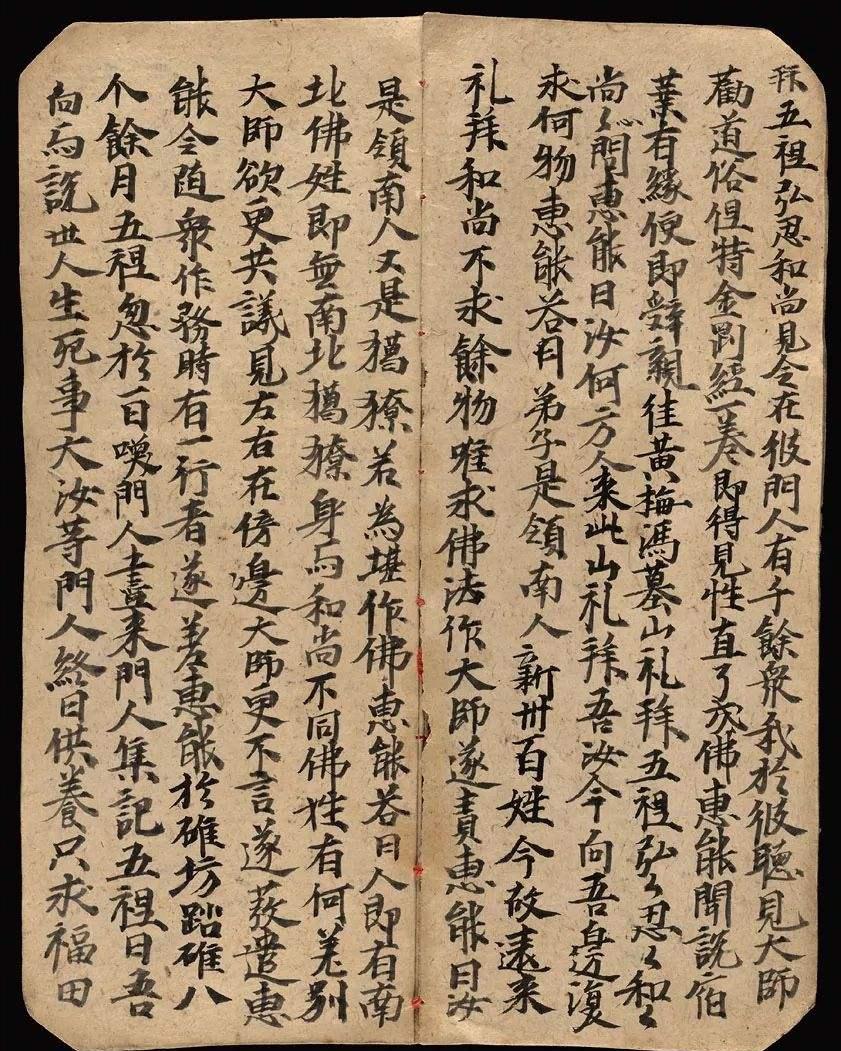 拜五祖弘忍和尚見今在彼門人有千餘衆我於彼聽見大師
勸道俗但持金剛經一卷即得見性直了成佛惠能聞說宿
業有緣便即辭親往黃梅馮墓山礼拜五祖弘々忍々和々
尚々問惠能曰汝何方人來此山礼拜吾汝今向吾邊復
求何物惠能荅曰弟子是領南人新州百姓今故遠來
礼拜和尚不求餘物唯求佛法作大師遂責惠能曰汝
是領南人又是獦獠若為堪作佛惠能荅曰人即有南
北佛姓即無南北獦獠身与和尚不同佛姓有何差別
大師欲更共議見左右在傍邊大師更不言遂發遣惠
能令隨衆作務時有一行者遂差惠能於碓坊踏碓八
个餘月五祖忽於一日喚門人盡來門人集記五祖曰吾
向与說世人生死事大汝等門人終日供養只求福田